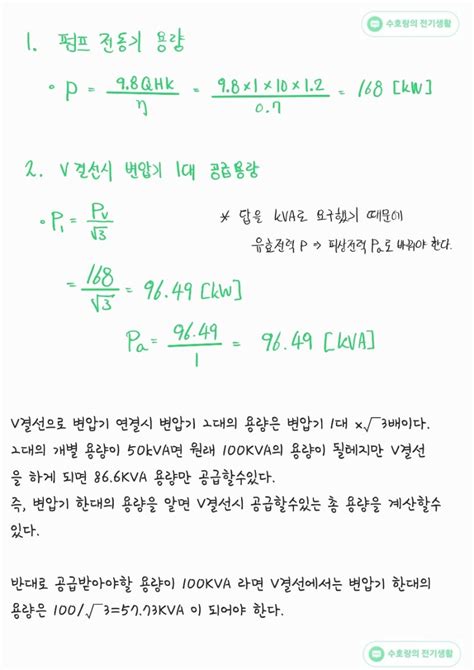 수호랑의 전기생활
1. 펌프 전동기 용량
∘ P = 9.8QHK/η = 9.8×1×10×1.2/0.7 = 168 [kW]
2. V결선시 변압기 1대 공급용량
∘ P₁ = Pv/√3
* 답을 kVA로 요구했기 때문에
유효전력 P → 피상전력 Pa로 바꿔야 한다.
= 168/√3 = 96.49 [kW]
Pa = 96.49/1 = 96.49 [kVA]
V결선으로 변압기 연결시 변압기 2대의 용량은 변압기 1대 x√3배이다.
2대의 개별 용량이 50kVA면 원래 100KVA의 용량이 될테지만 V결선
을 하게 되면 86.6KVA 용량만 공급할수있다.
즉, 변압기 한대의 용량을 알면 V결선시 공급할수있는 총 용량을 계산할수
있다.
반대로 공급받아야할 용량이 100KVA 라면 V결선에서는 변압기 한대의
용량은 100/√3=57.73KVA 이 되어야 한다.
수호랑의 전기생활